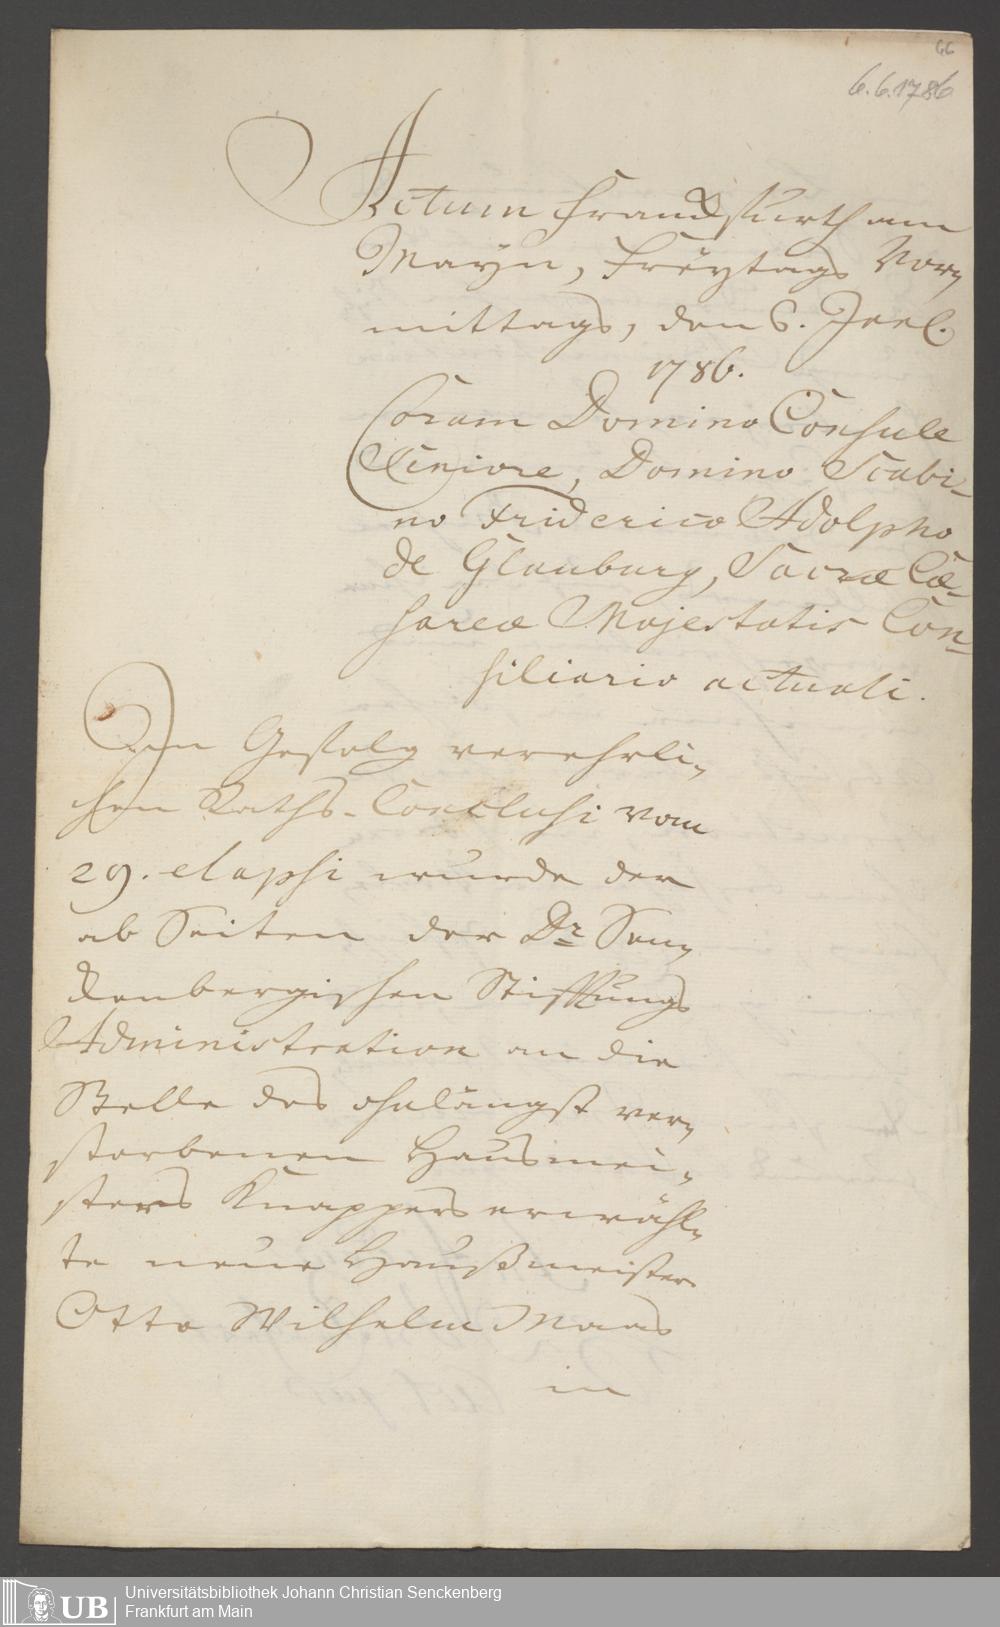 66
6.6.1786
Actum Franckfurth am
Mayn, Freytags Vor-
mittags, den 6. Jul.
1786.
Coram Domino Consule
Seniore, Domino Scabi-
no Friderico Adolpho
de Glauburg, Sacræ Cæ-
sareæ Majestatis Con-
siliario actuali.
In Gefolg verehrli-
chen Raths-Conclusi vom
29. elapsi wurde der
ab Seiten der Dr. Sen-
ckenbergischen Stifftungs
Administration an die
Stelle des ohnlängst ver-
storbenen Hausmei-
sters Knappers erwähl-
te neue Haußmeister
Otto Wilhelm Maas
in
UB
Universitätsbibliothek Johann Christian Senckenberg
Frankfurt am Main